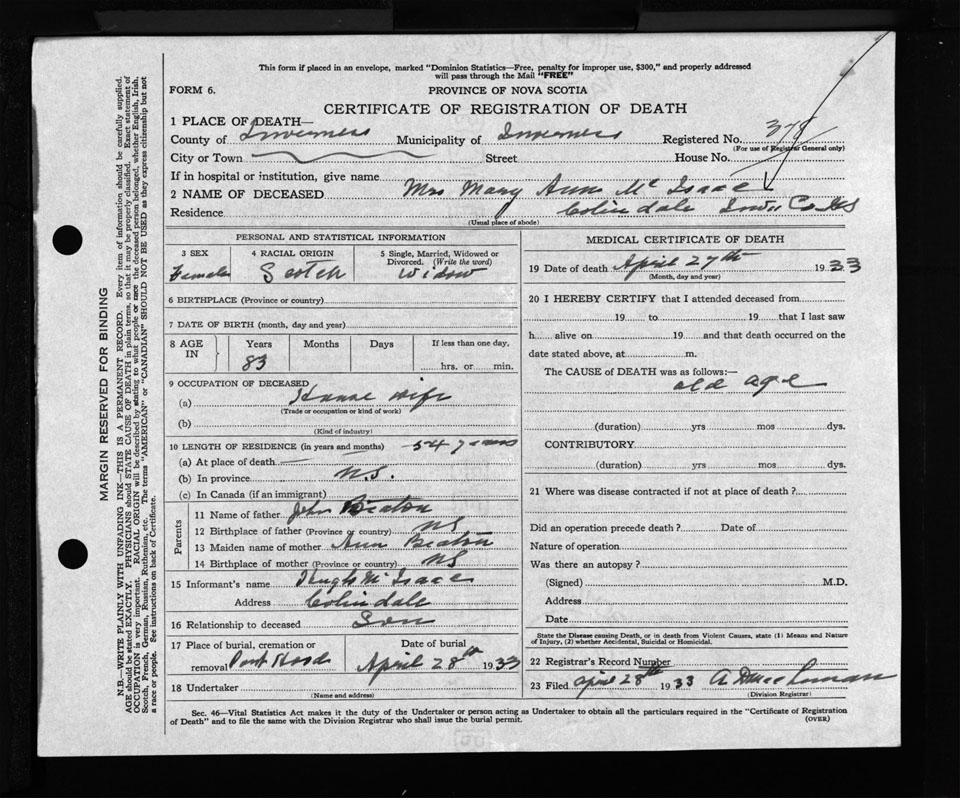 This form if placed in an envelope, marked "Dominion Statistics—Free, penalty for improper use, $300," and properly addressed
will pass through the Mail "FREE"
FORM 6.
PROVINCE OF NOVA SCOTIA
CERTIFICATE OF REGISTRATION OF DEATH
1 PLACE OF DEATH—
County of Inverness Municipality of Inverness Registered No. 378
(For use of Registrar General only)
City or Town Street House No.
If in hospital or institution, give name
2 NAME OF DECEASED Mrs Mary Ann Mc Isaac
Residence Colindale Co NS
(Usual place of abode)
PERSONAL AND STATISTICAL INFORMATION
3 SEX 4 RACIAL ORIGIN 5 Single, Married, Widowed or
Divorced. (Write the word)
Female Scotch Widow
6 BIRTHPLACE (Province or country)
7 DATE OF BIRTH (month, day and year)
8 AGE IN Years Months Days If less than one day,
83 hrs. or min.
9 OCCUPATION OF DECEASED
(a) House wife
(Trade or occupation or kind of work)
(b)
(Kind of industry)
10 LENGTH OF RESIDENCE (in years and months) 54 years
(a) At place of death
(b) In province N.S.
(c) In Canada (if an immigrant)
Parents
11 Name of father John Beaton
12 Birthplace of father (Province or country) NS
13 Maiden name of mother Ann Beaton
14 Birthplace of mother (Province or country) NS
15 Informant's name Hugh Mc Isaac
Address Colindale
16 Relationship to deceased Son
17 Place of burial, cremation or Date of burial
removal Port Hood April 28th 1933
18 Undertaker
(Name and address)
MEDICAL CERTIFICATE OF DEATH
19 Date of death April 27th 1933
(Month, day and year)
20 I HEREBY CERTIFY that I attended deceased from
19 to 19 that I last saw
h alive on 19 and that death occurred on the
date stated above, at m.
The CAUSE of DEATH was as follows:—
old age
(duration) yrs mos dys.
CONTRIBUTORY
(duration) yrs mos dys.
21 Where was disease contracted if not at place of death?
Did an operation precede death? Date of
Nature of operation
Was there an autopsy?
(Signed) M.D.
Address
Date
State the Disease causing Death, or in death from Violent Causes, state (1) Means and Nature
of Injury, (2) whether Accidental, Suicidal or Homicidal.
22 Registrar's Record Number
23 Filed april 28th 1933
(Division Registrar)
Sec. 46—Vital Statistics Act makes it the duty of the Undertaker or person acting as Undertaker to obtain all the particulars required in the "Certificate of Registration
of Death" and to file the same with the Division Registrar who shall issue the burial permit.
(OVER)
MARGIN RESERVED FOR BINDING
N.B.—WRITE PLAINLY WITH UNFADING INK—THIS IS A PERMANENT RECORD. Every item of information should be carefully supplied.
AGE should be stated EXACTLY. PHYSICIANS should STATE CAUSE OF DEATH in plain terms, so that it may be properly classified. Exact statement of
OCCUPATION is very important. RACIAL ORIGIN will be described by stating to what people or race the deceased person belonged, whether English, Irish,
Scotch, French, German, Russian, Ruthenian, etc. The terms "AMERICAN" or "CANADIAN" SHOULD NOT BE USED as they express citizenship but not
a race or people. See instructions on back of Certificate.